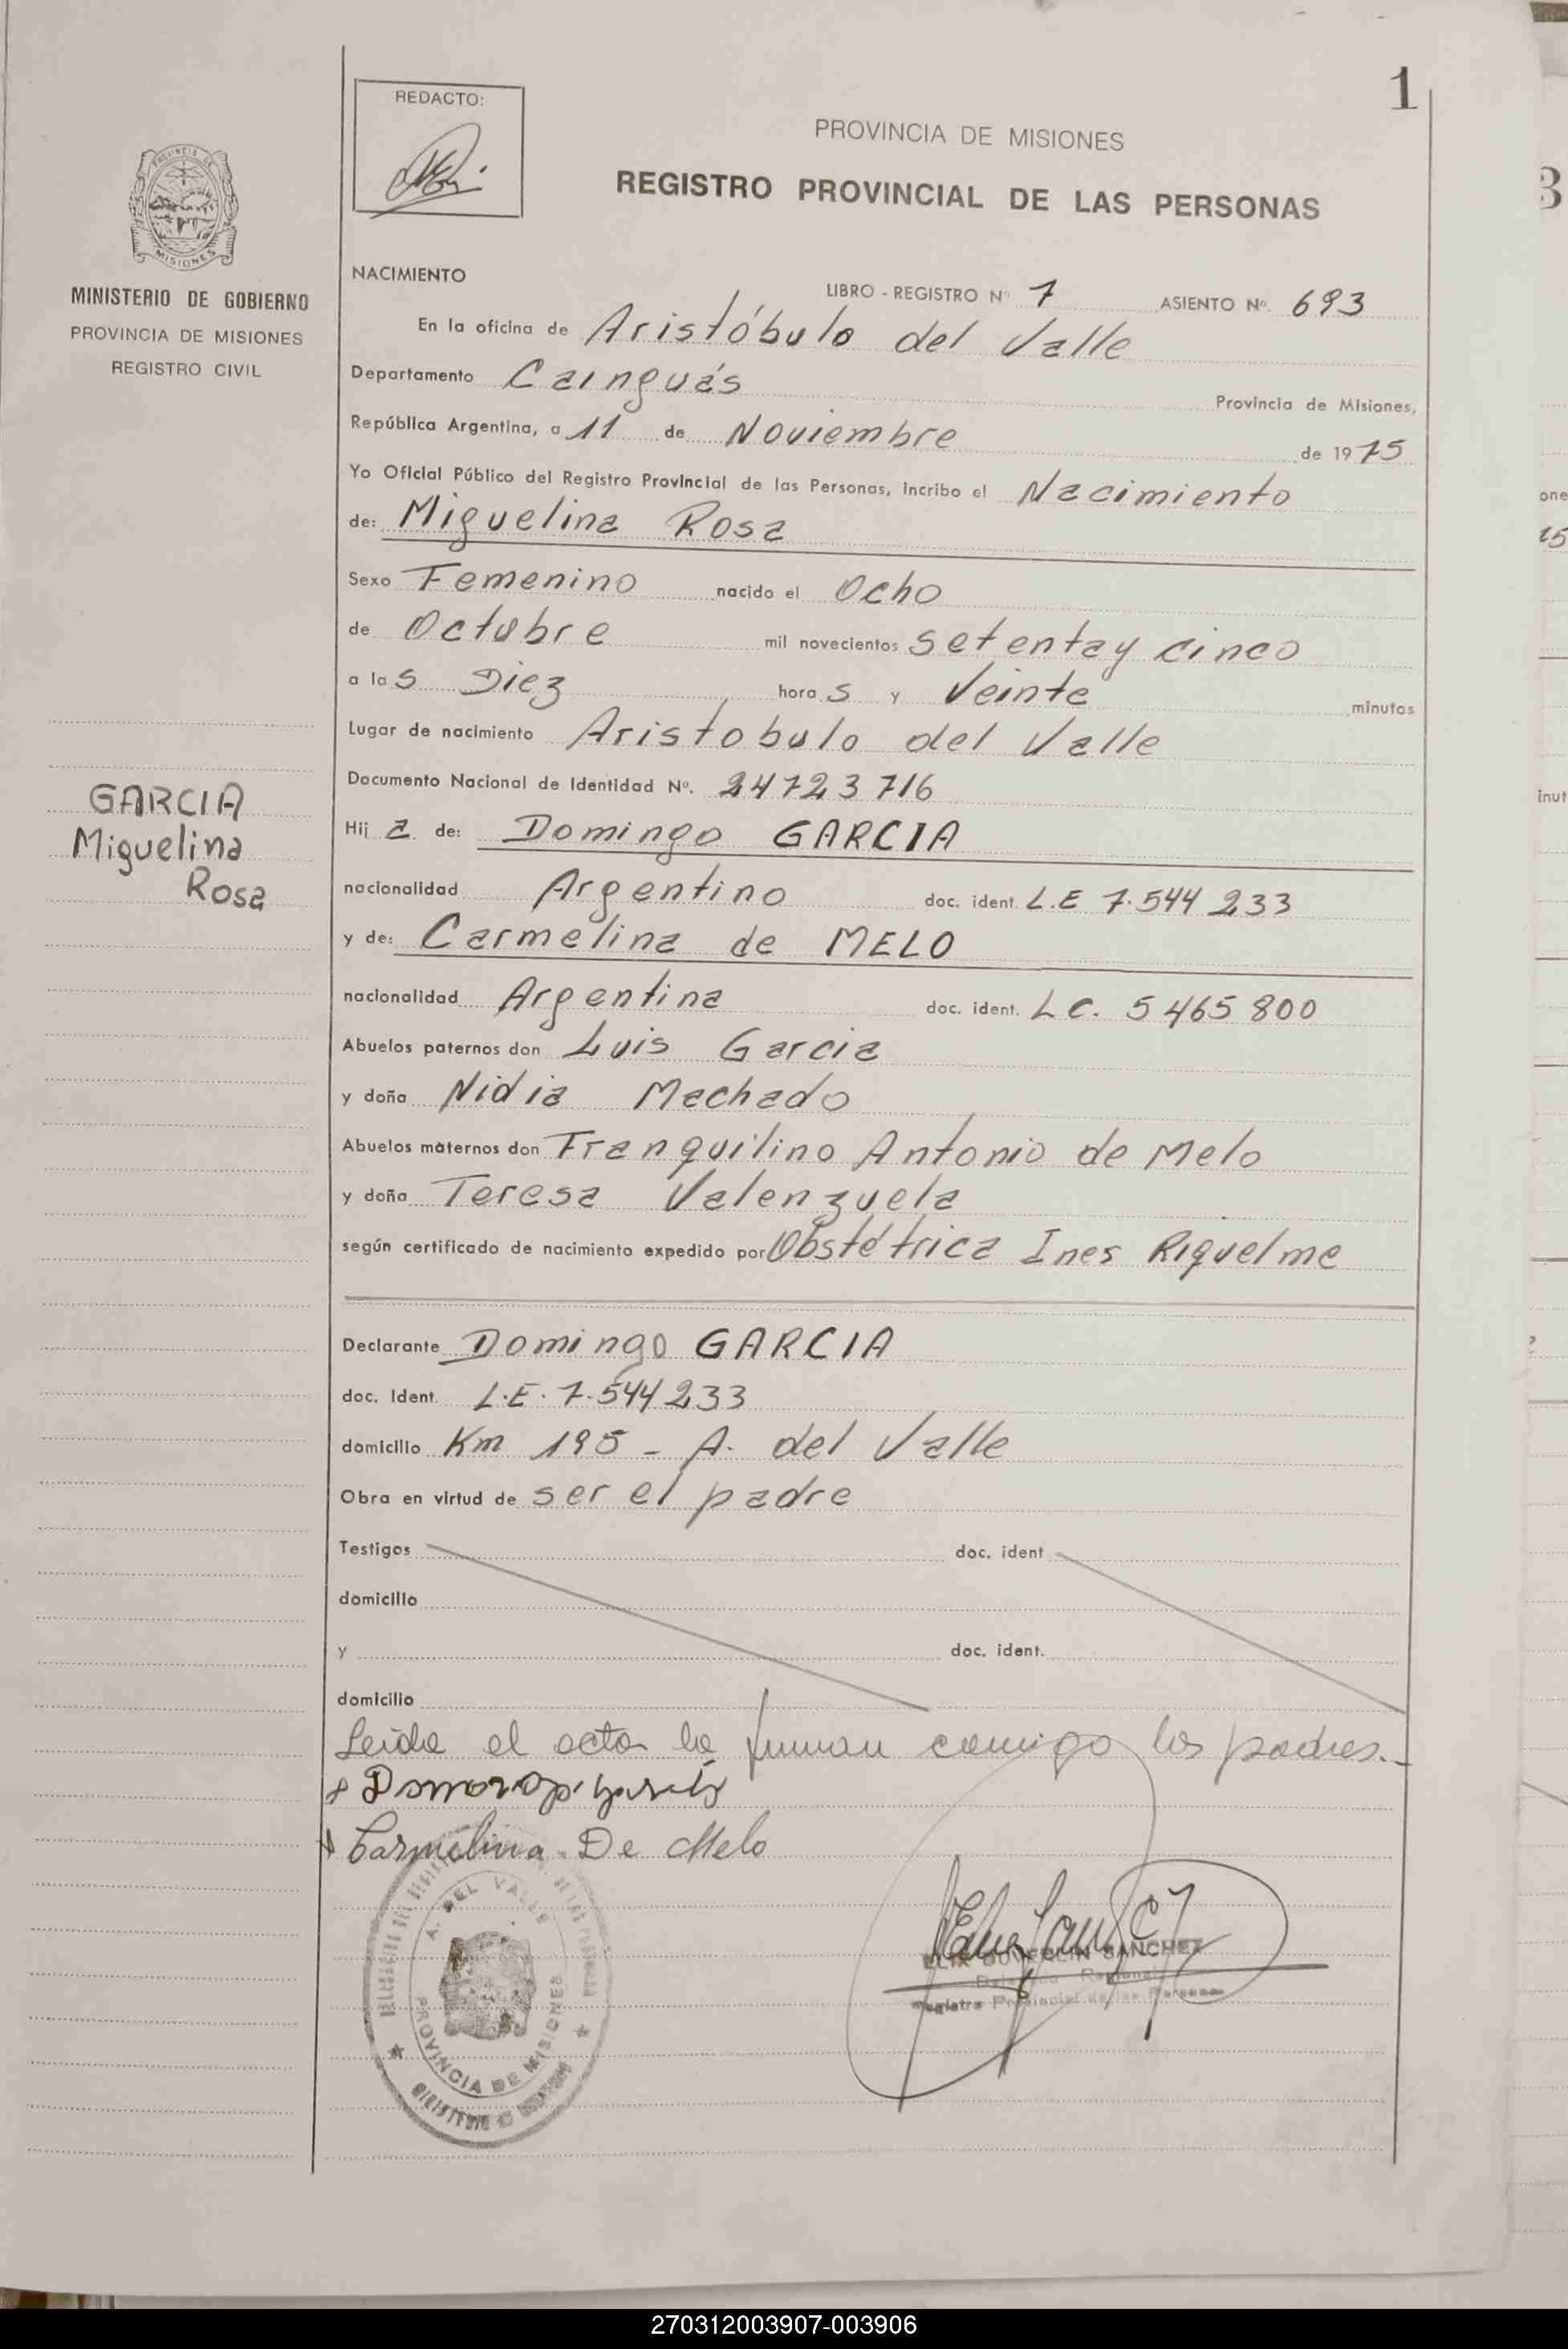 1
REDACTO:
PROVINCIA DE MISIONES
REGISTRO PROVINCIAL DE LAS PERSONAS
PROVINCIA DE
MISIONES
MINISTERIO DE GOBIERNO
PROVINCIA DE MISIONES
REGISTRO CIVIL
NACIMIENTO
LIBRO - REGISTRO Nº 7 ASIENTO Nº. 693
En la oficina de Aristóbulo del Valle
Departamento Cainguás Provincia de Misiones,
República Argentina, a 11 de Noviembre de 1975
Yo Oficial Público del Registro Provincial de las Personas, incribo el Nacimiento
de: Miguelina Rosa
Sexo Femenino nacido el Ocho
de Octubre mil novecientos setenta y cinco
a las Diez horas y Veinte minutos
Lugar de nacimiento Aristobulo del Valle
Documento Nacional de Identidad Nº. 24723716
GARCIA
Miguelina
Rosa
Hija de: Domingo GARCIA
nacionalidad Argentino doc. ident. L.E 7.544 233
y de: Carmelina de MELO
nacionalidad Argentina doc. ident. L C. 5465 800
Abuelos paternos don Luis Garcia
y doña Nidia Machado
Abuelos maternos don Tranquilino Antonio de Melo
y doña Teresa Valenzuela
según certificado de nacimiento expedido por Obstétrica Ines Riquelme
Declarante Domingo GARCIA
doc. Ident. L.E. 7.544 233
domicilio Km 195 - A. del Valle
Obra en virtud de ser el padre
Testigos doc. ident
domicilio
y doc. ident.
domicilio
Leida el acta la firman comigo los padres.-
Carmelina De Melo
A. DEL VALLE
PROVINCIA DE MISIONES
SANCHEZ
Registro Provincial de las Personas
270312003907-003906